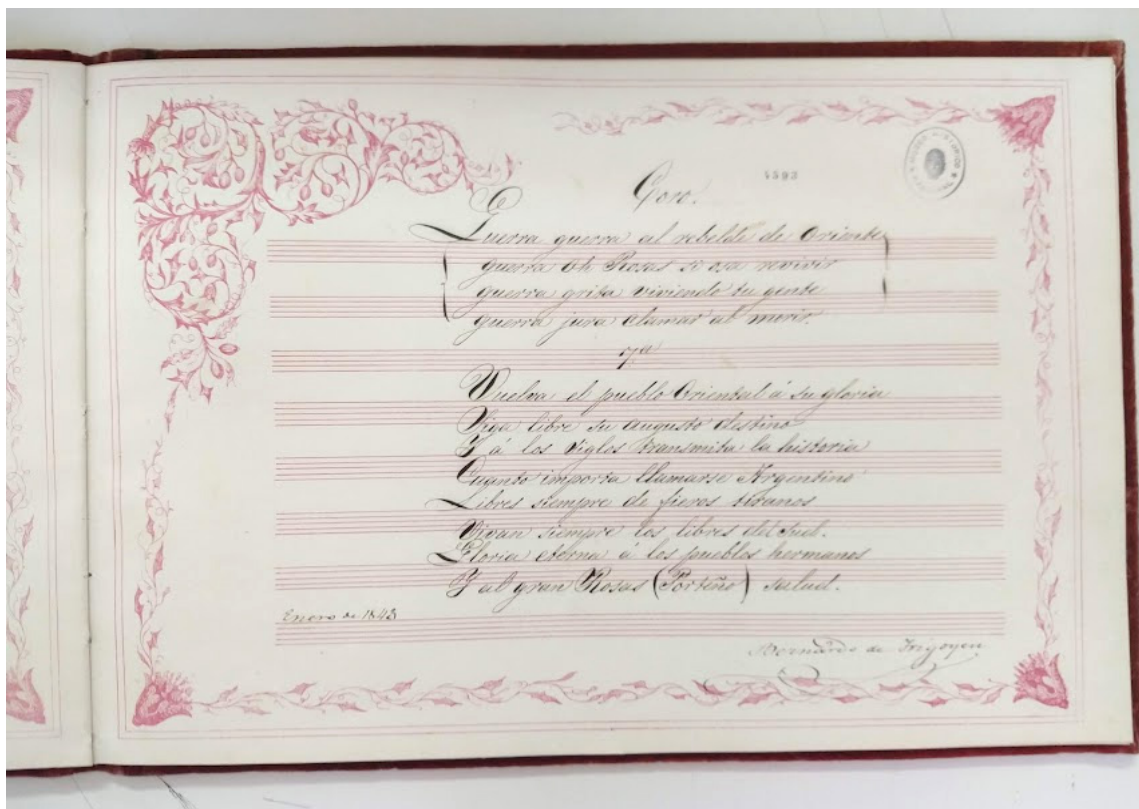 Coro.
4593
Guerra guerra al rebelde de Oriente
guerra oh Rosas si osa revivir
guerra grita viviendo tu gente
guerra jura clamar al morir.
7ª
Vuelva el pueblo Oriental á su gloria
Siga libre su augusto destino
Y á los siglos transmita la historia
Cuanto importa llamarse Argentino
Libres siempre de fieros tiranos
Vivan siempre los libres del Sud.
Gloria eterna á los pueblos hermanos
Y al gran Rosas (Porteño) salud.
Enero de 1843
Bernardo de Irigoyen